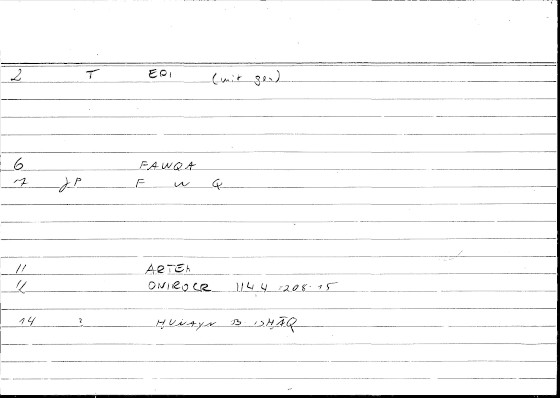 2 T EPI (mit gen)
6 FAWQA
7 JP F W Q
11 ARTEM
12 ONIROCR 1144 208.15
14 ? ḤUNAYN B ISḤĀQ